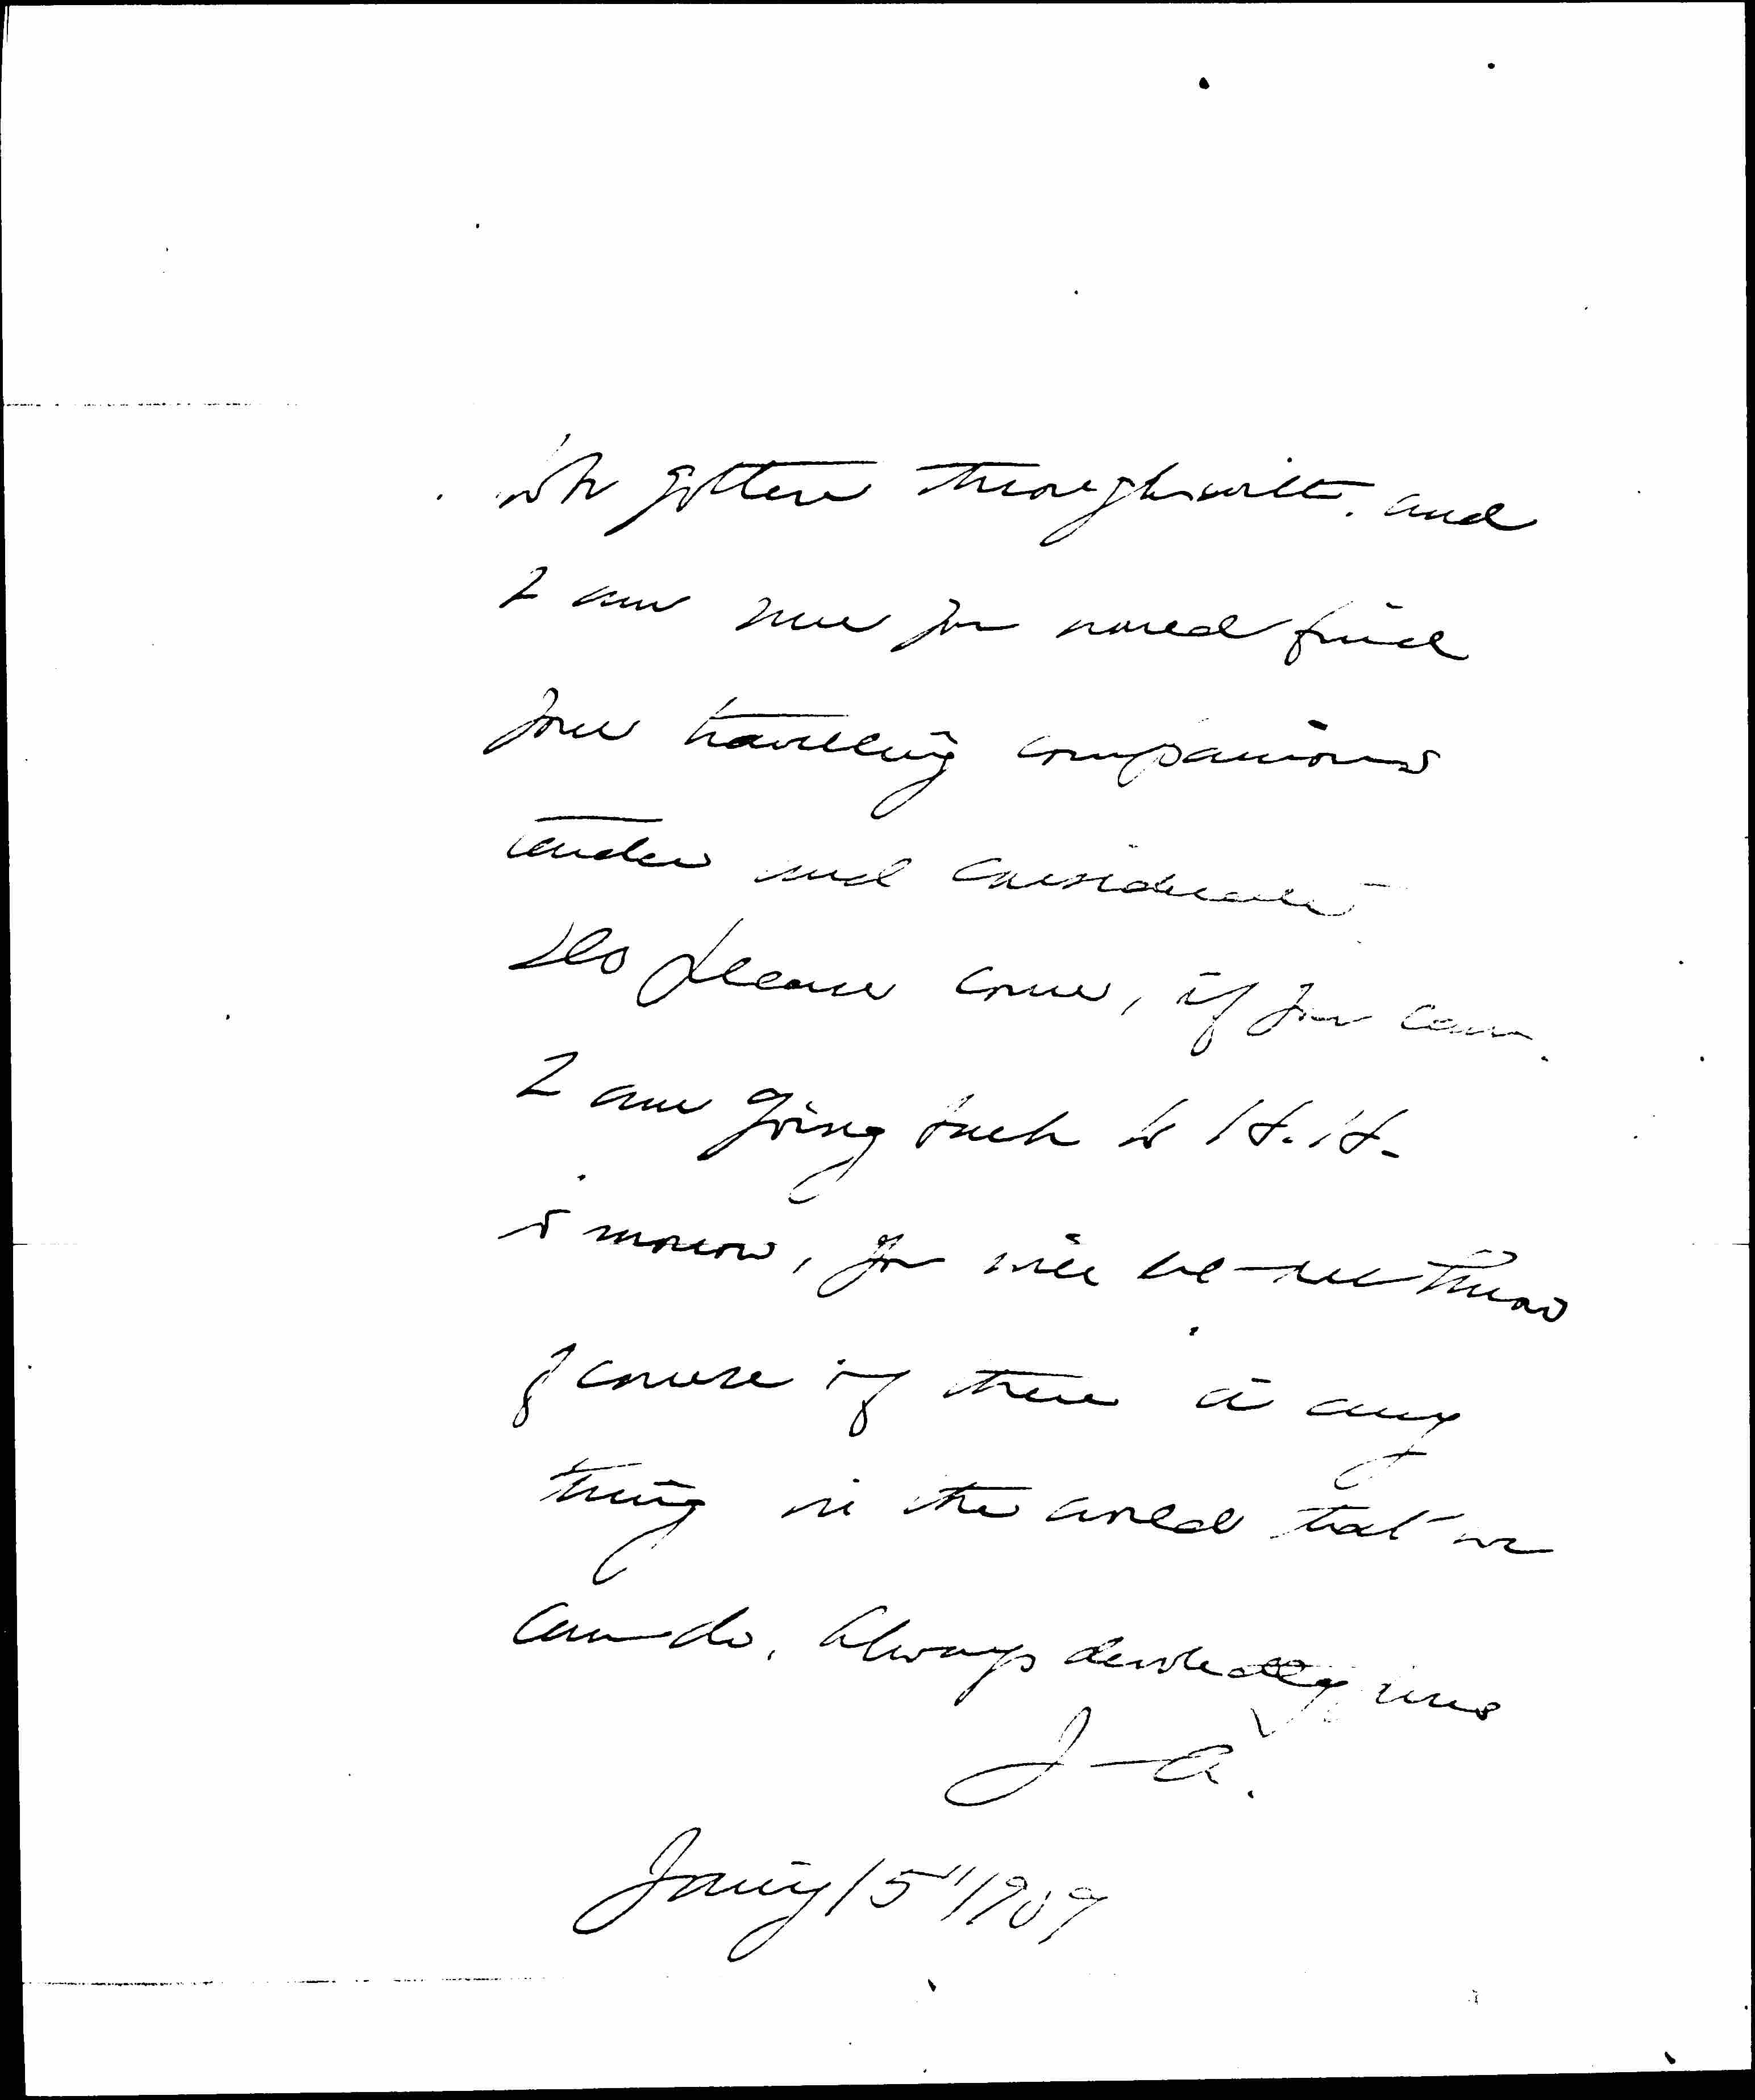 gotten through with. and
I am sure you would find
your travelling companions
tender and considerate
Do please come, if you can.
I am going back to H. H.
to morrow, you will let me know
of course if there is any
thing in the world that we
can do. Always devotedly yours
J. A.
Jan'y 15" 1909